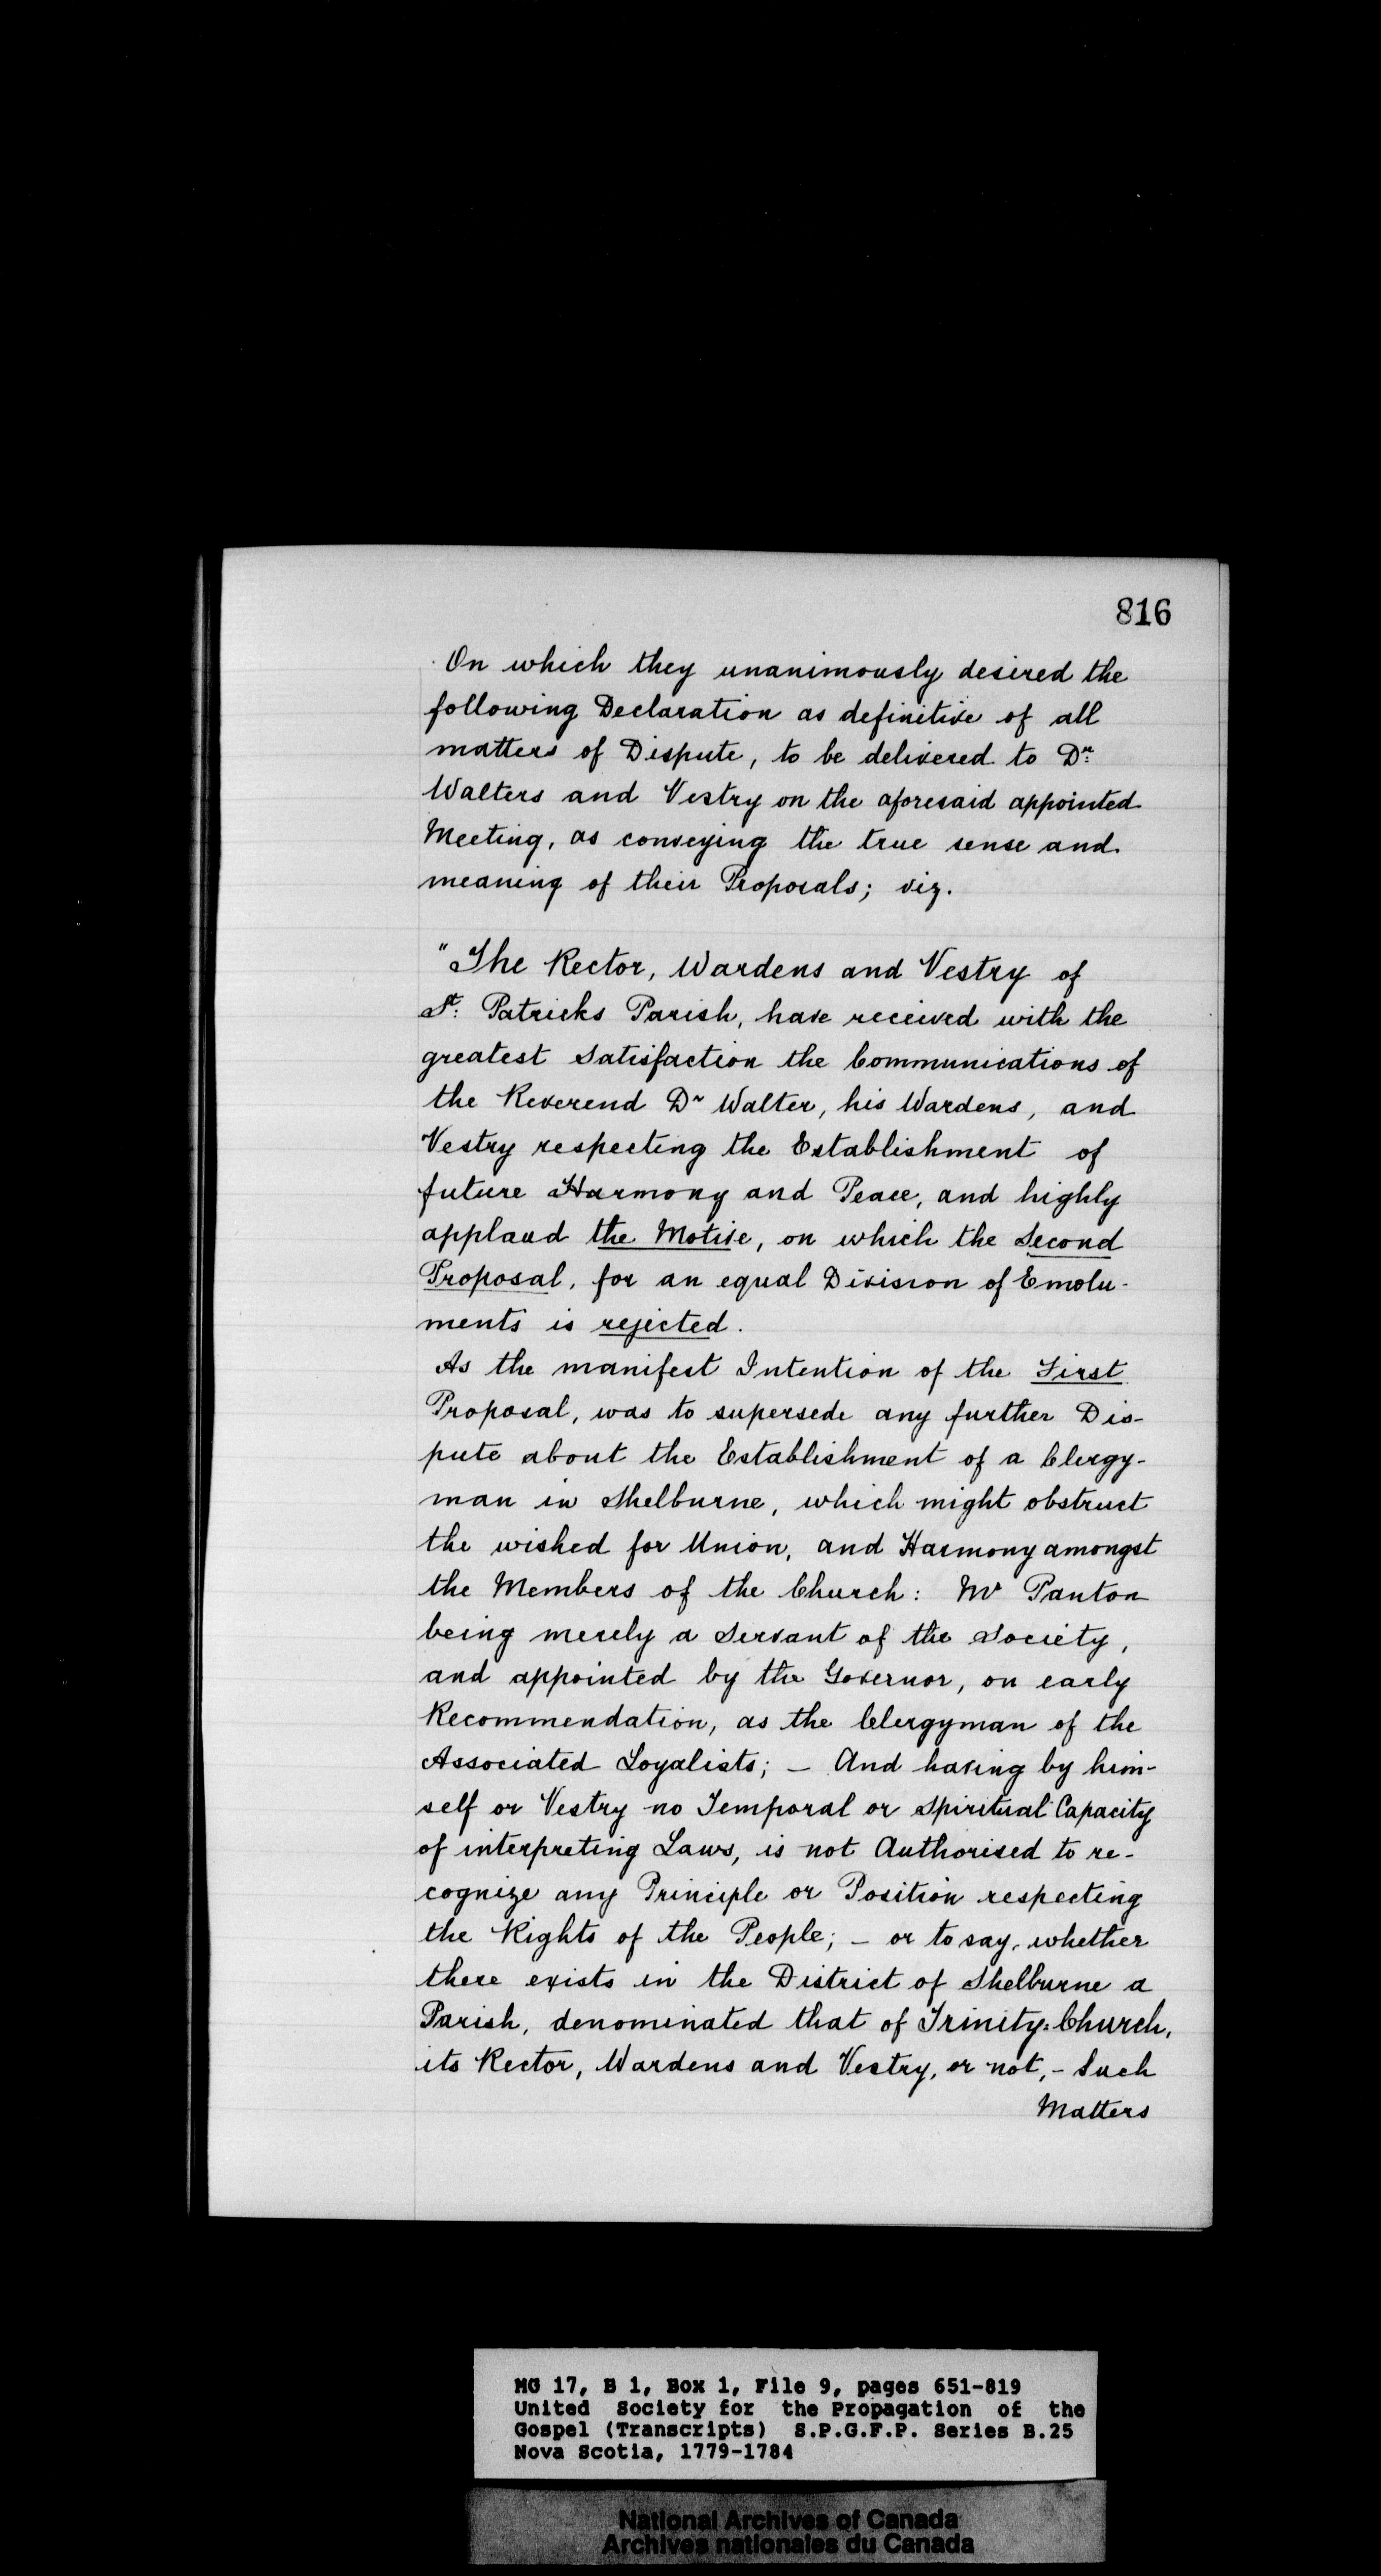 816
On which they unanimously desired the
following Declaration as definitive of all
matters of Dispute, to be delivered to Dr:
Walters and Vestry on the aforesaid appointed
Meeting, as conveying the true sense and
meaning of their Proposals; viz.
"The Rector, Wardens and Vestry of
St: Patricks Parish, have received with the
greatest Satisfaction the Communications of
the Reverend Dr Walter, his Wardens, and
Vestry respecting the Establishment of
future Harmony and Peace, and highly
applaud the Motive, on which the Second
Proposal, for an equal Division of Emolu-
ments is rejected.
As the manifest Intention of the First
Proposal, was to supersede any further Dis-
pute about the Establishment of a Clergy-
man in Shelburne, which might obstruct
the wished for Union, and Harmony amongst
the Members of the Church: Mr Panton
being merely a Servant of the Society,
and appointed by the Governor, on early
Recommendation, as the Clergyman of the
Associated Loyalists; - And having by him-
self or Vestry no Temporal or Spiritual Capacity
of interpreting Laws, is not Authorised to re-
cognize any Principle or Position respecting
the Rights of the People; - or to say, whether
there exists in the District of Shelburne a
Parish, denominated that of Trinity=Church,
its Rector, Wardens and Vestry, or not, - Such
Matters
MG 17, B 1, Box 1, File 9, pages 651-819
United Society for the Propagation of the
Gospel (Transcripts) S.P.G.F.P. Series B.25
Nova Scotia, 1779-1784
National Archives of Canada
Archives nationales du Canada